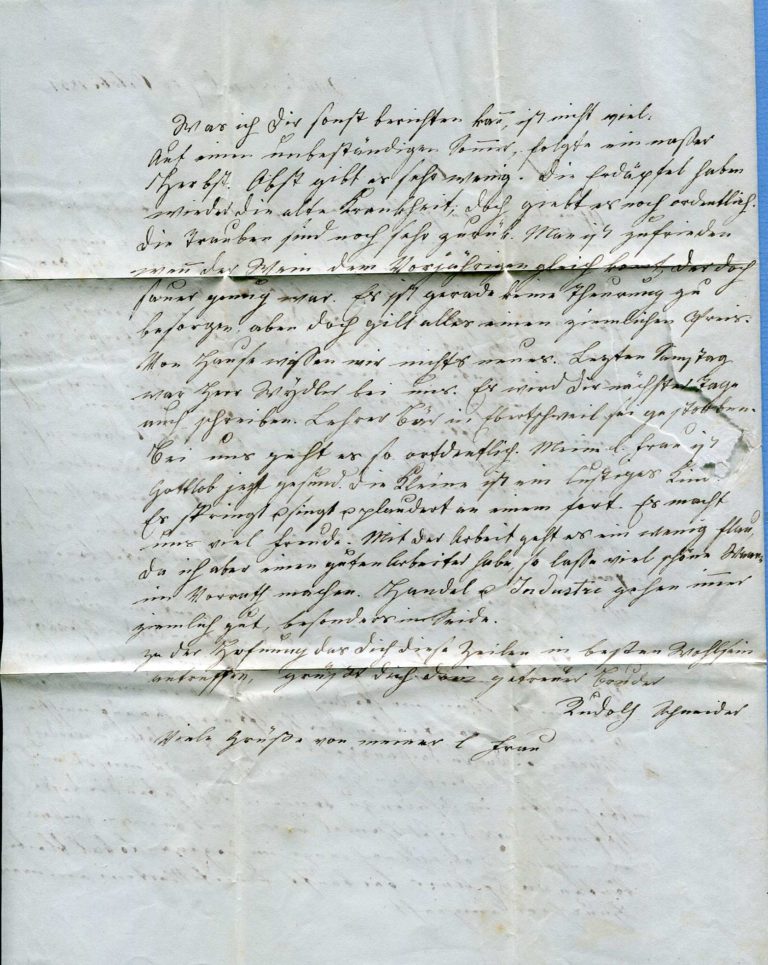 Was ich dir sonst berichten kan̄, ist nicht viel.
Auf einen unbeständigen Som̄er, folgte ein nasser
Herbst. Obst gibt es sehr wenig. Die Erdäpfel haben
wieder die alte Krankheit, doch giebt es noch ordentlich.
Die Trauben sind noch sehr zurük. Man ist zufrieden
wen̄ der Wein dem Vorjährigen gleich kom̄t, der doch
sauer genug war. Es ist gerade keine Theurung zu
besorgen, aber doch gilt alles einen ziemlichen Preis.
Von Hause wissen wir nichts neues. Letzten Samstag
war Herr Wydler bei uns. Er wird dir nächster Tage
auch schreiben. Lehrer Bär in Ebertschweil sei gestorben.
Bei uns geht es so ordentlich. Meine l. Frau ist
Gottlob jetzt gesund. die Kleine ist ein lustiges Kind
Es springt singt plaudert an einem fort. Es macht
uns viel Freude. Mit der Arbeit geht es ein wenig flau,
da ich aber einen guten Arbeiter habe, so lasse viel schöne
im Vorrath machen. Handel u Industrie gehen im̄er
ziemlich gut, besonders in Seide.
In der Hofnung das dich diese Zeilen in besten Wohlsein
antreffen, grüßt dich dein getreuer Bruder
Rudolf Schneider
Viele Grüße von meiner l Frau